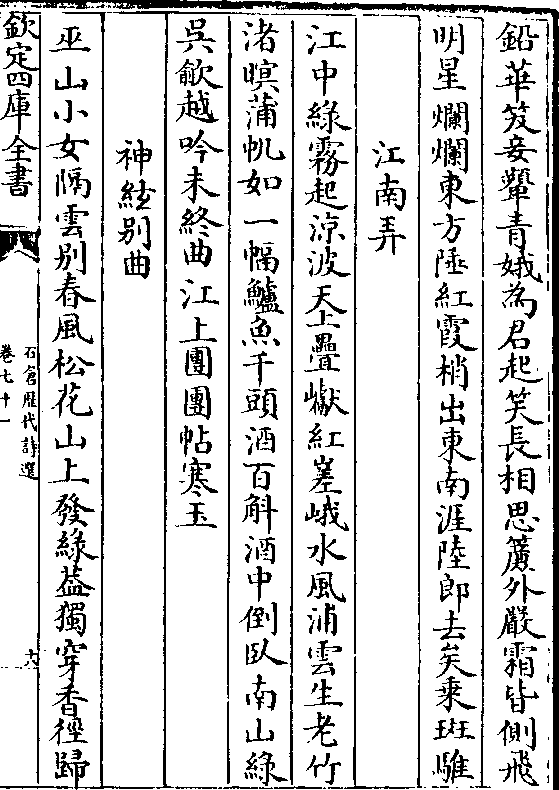 鉛華笈妾顰青娥為君起笑長相思簾外嚴霜皆側飛
明星爛爛東方陲紅霞梢出東南涯陸郎去矣乗斑騅
江南弄
江中綠霧起涼波天上疊巘紅嵳峨水風浦雲生老竹
渚暝蒲帆如一幅鱸魚千頭酒百斛酒中倒臥南山綠
吳歈越吟未終曲江上團團帖寒玉
神絃别曲
巫山小女隔雲别春風松花山上發綠葢獨穿香徑歸
欽定四庫全書
石倉歴代詩選
卷七十一
十六